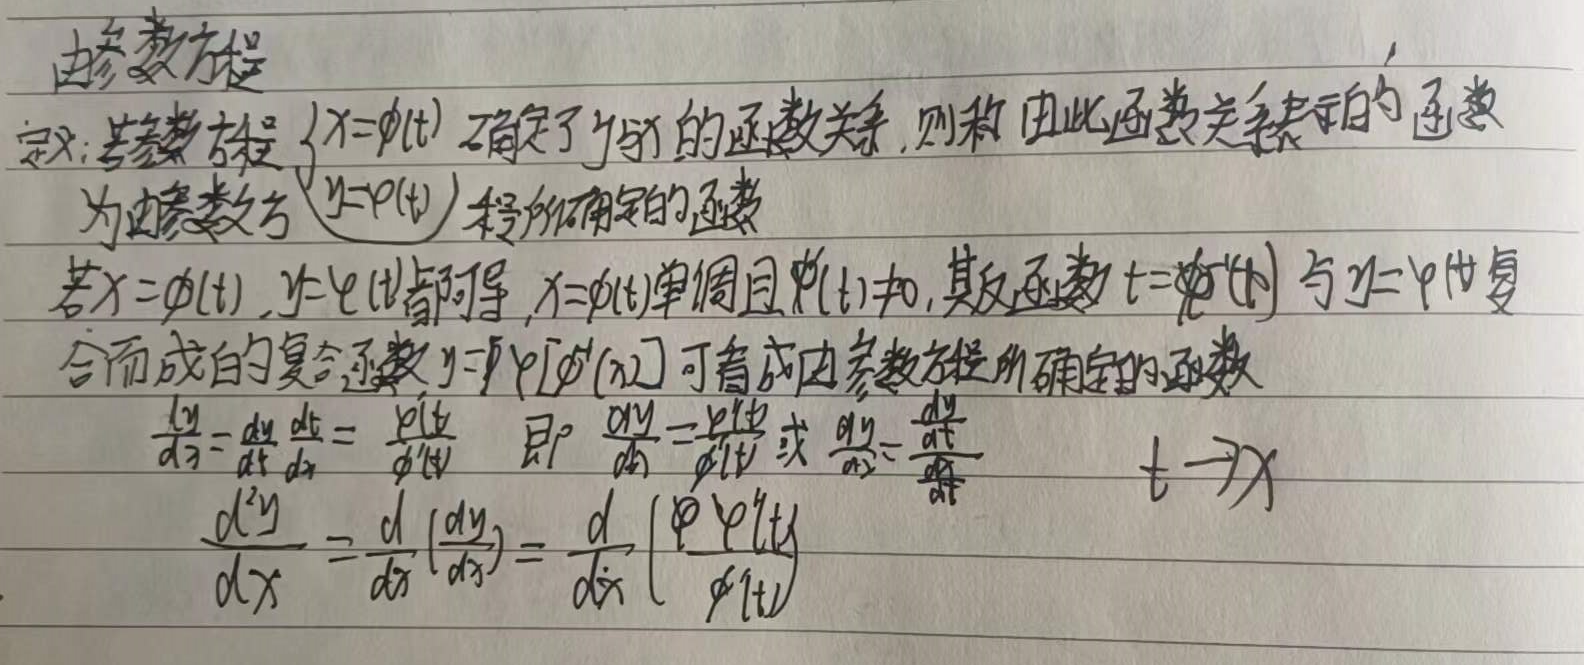 由参数方程
定义:若参数方程{x=φ(t) 确定了y与x的函数关系,则称由此函数关系表示的函数
为由参数方 y=ψ(t) 程所确定的函数
若x=φ(t),y=ψ(t)都可导,x=φ(t)单调且φ'(t)≠0,其反函数t=φ⁻¹(x)与y=ψ(t)复
合而成的复合函数y=ψ[φ⁻¹(x)]可看成由参数方程所确定的函数
dy/dx=dy/dt dt/dx=ψ'(t)/φ'(t) 即 dy/dx=ψ'(t)/φ'(t) 或 dy/dx=(dy/dt)/(dx/dt) t→x
d²y/dx=d/dx(dy/dx)=d/dx(ψ'(t)/φ'(t))